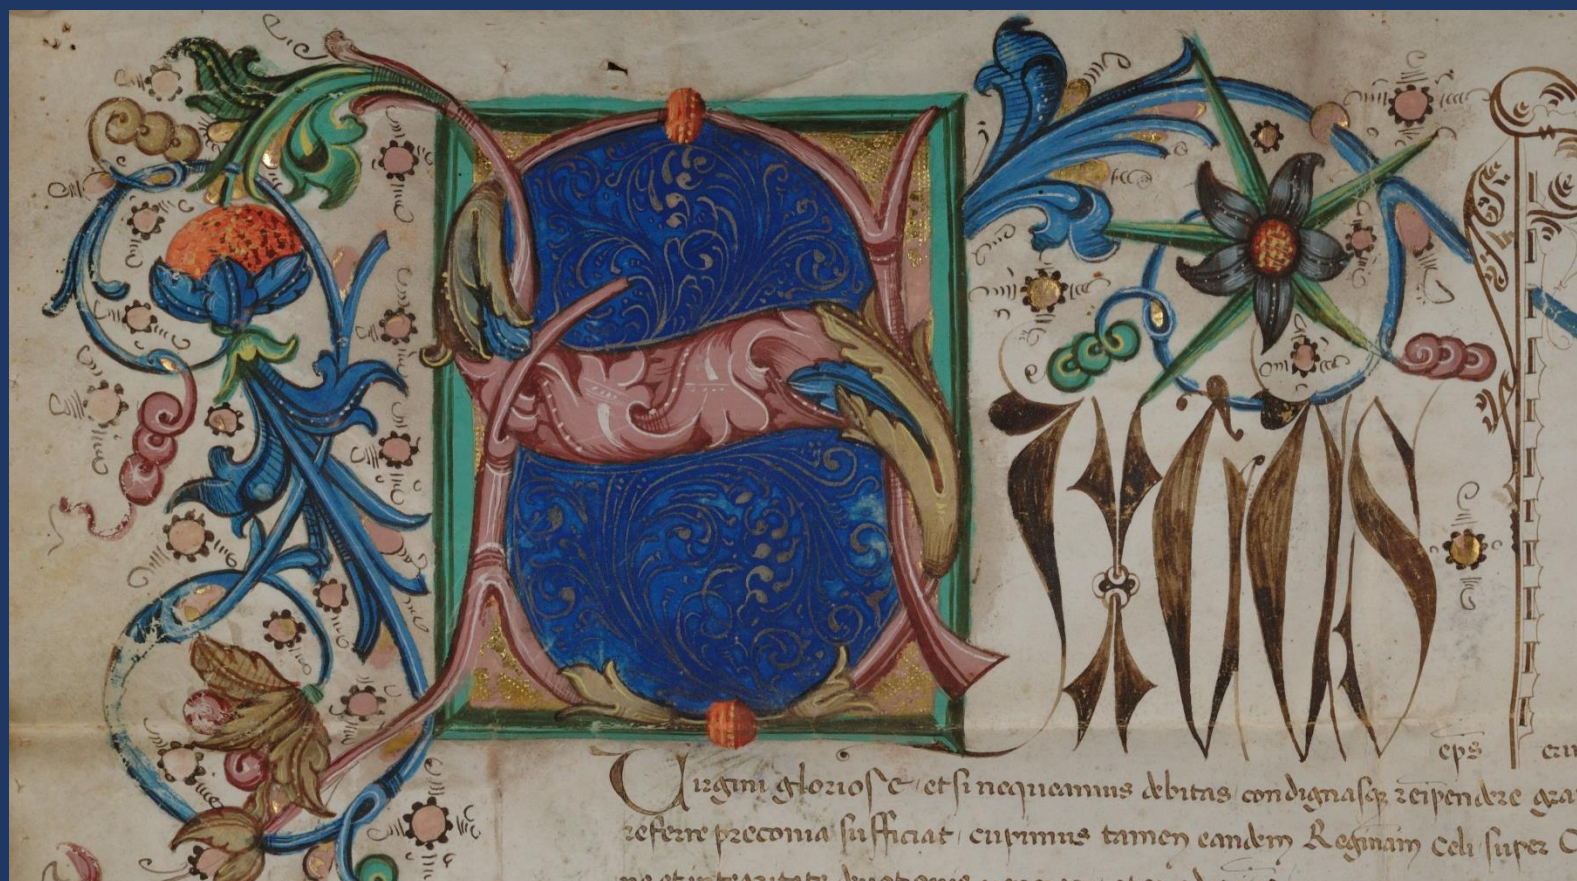 SIXTUS
eps
Uirgini gloriose et si nequeamus debitas condignasqꝫ reipendere gra
referre preconia sufficiat cupimus tamen eandem Reginam Celi super